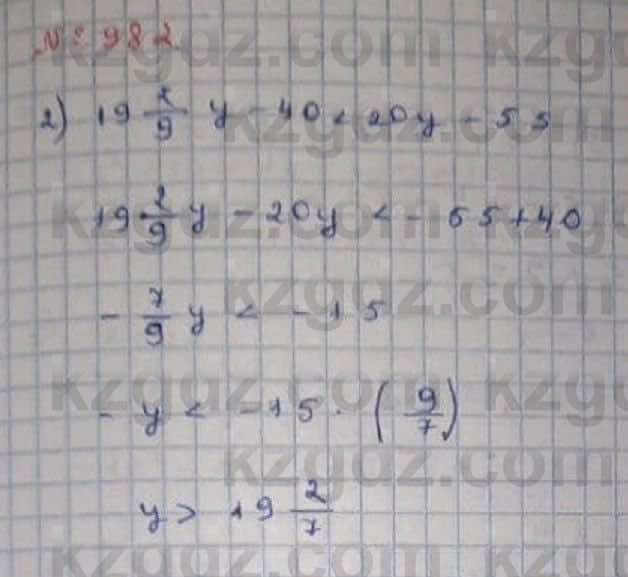 № 982
2) 19 2/9 y - 40 < 20y - 55
19 2/9 y - 20y < - 55 + 40
- 7/9 y < - 15
- y < - 15 · (9/7)
y > 19 2/7
kzgdz.com